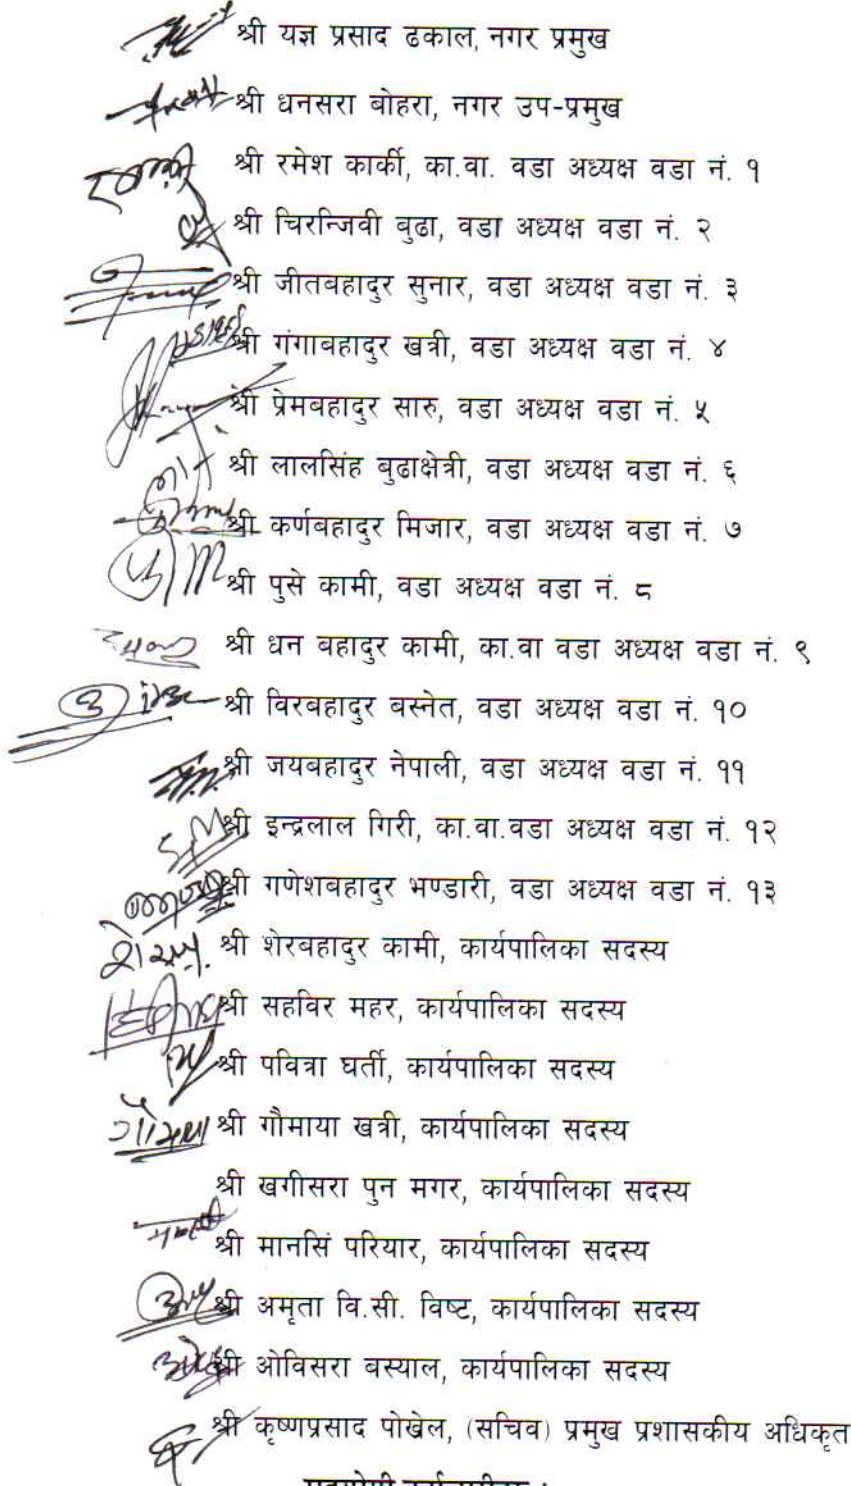 श्री यज्ञ प्रसाद ढकाल, नगर प्रमुख
श्री धनसरा बोहरा, नगर उप-प्रमुख
श्री रमेश कार्की, का.वा. वडा अध्यक्ष वडा नं. १
श्री चिरन्जिवी बुढा, वडा अध्यक्ष वडा नं. २
श्री जीतबहादुर सुनार, वडा अध्यक्ष वडा नं. ३
श्री गंगाबहादुर खत्री, वडा अध्यक्ष वडा नं. ४
श्री प्रेमबहादुर सारु, वडा अध्यक्ष वडा नं. ५
श्री लालसिंह बुढाक्षेत्री, वडा अध्यक्ष वडा नं. ६
श्री कर्णबहादुर मिजार, वडा अध्यक्ष वडा नं. ७
श्री पुसे कामी, वडा अध्यक्ष वडा नं. ८
श्री धन बहादुर कामी, का.वा वडा अध्यक्ष वडा नं. ९
श्री विरबहादुर बस्नेत, वडा अध्यक्ष वडा नं. १०
श्री जयबहादुर नेपाली, वडा अध्यक्ष वडा नं. ११
श्री इन्द्रलाल गिरी, का.वा.वडा अध्यक्ष वडा नं. १२
श्री गणेशबहादुर भण्डारी, वडा अध्यक्ष वडा नं. १३
श्री शेरबहादुर कामी, कार्यपालिका सदस्य
श्री सहविर महर, कार्यपालिका सदस्य
श्री पवित्रा घर्ती, कार्यपालिका सदस्य
श्री गौमाया खत्री, कार्यपालिका सदस्य
श्री खगीसरा पुन मगर, कार्यपालिका सदस्य
श्री मानसिं परियार, कार्यपालिका सदस्य
श्री अमृता वि.सी. विष्ट, कार्यपालिका सदस्य
श्री ओविसरा बस्याल, कार्यपालिका सदस्य
श्री कृष्णप्रसाद पोखेल, (सचिव) प्रमुख प्रशासकीय अधिकृत